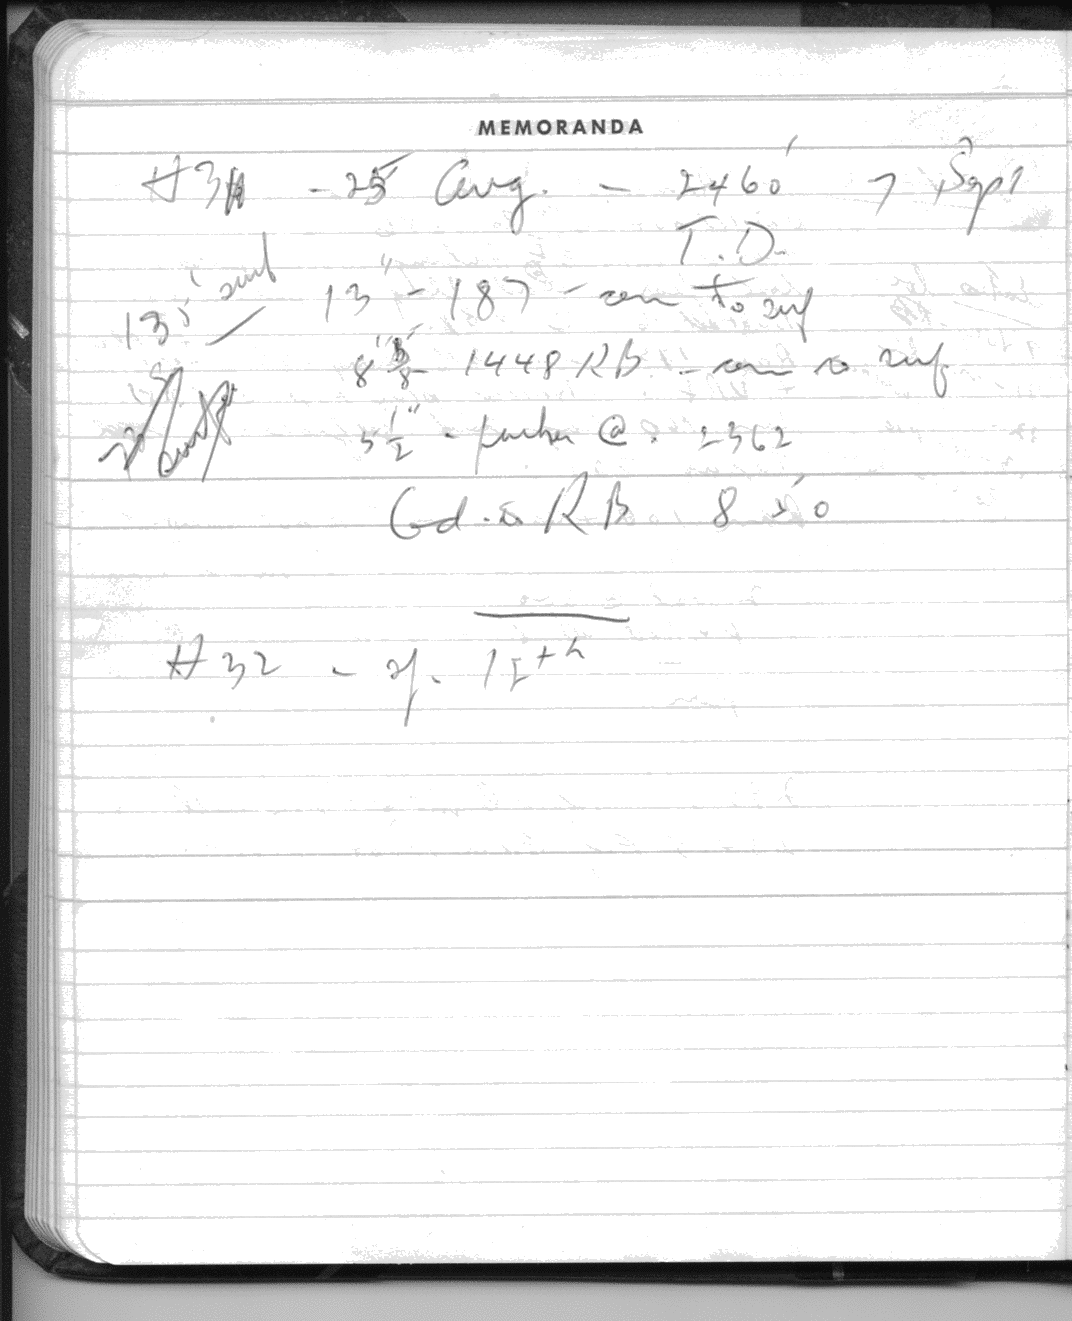 MEMORANDA
#31 - 25 Aug. - 2460' 7 Sept
T.D.
135' surf
13" - 187 - cem to surf
8 5/8" 1448 RB - cem to surf
5 1/2" - packer @ 2362
Gd. to RB 8.50
#32 - 15th